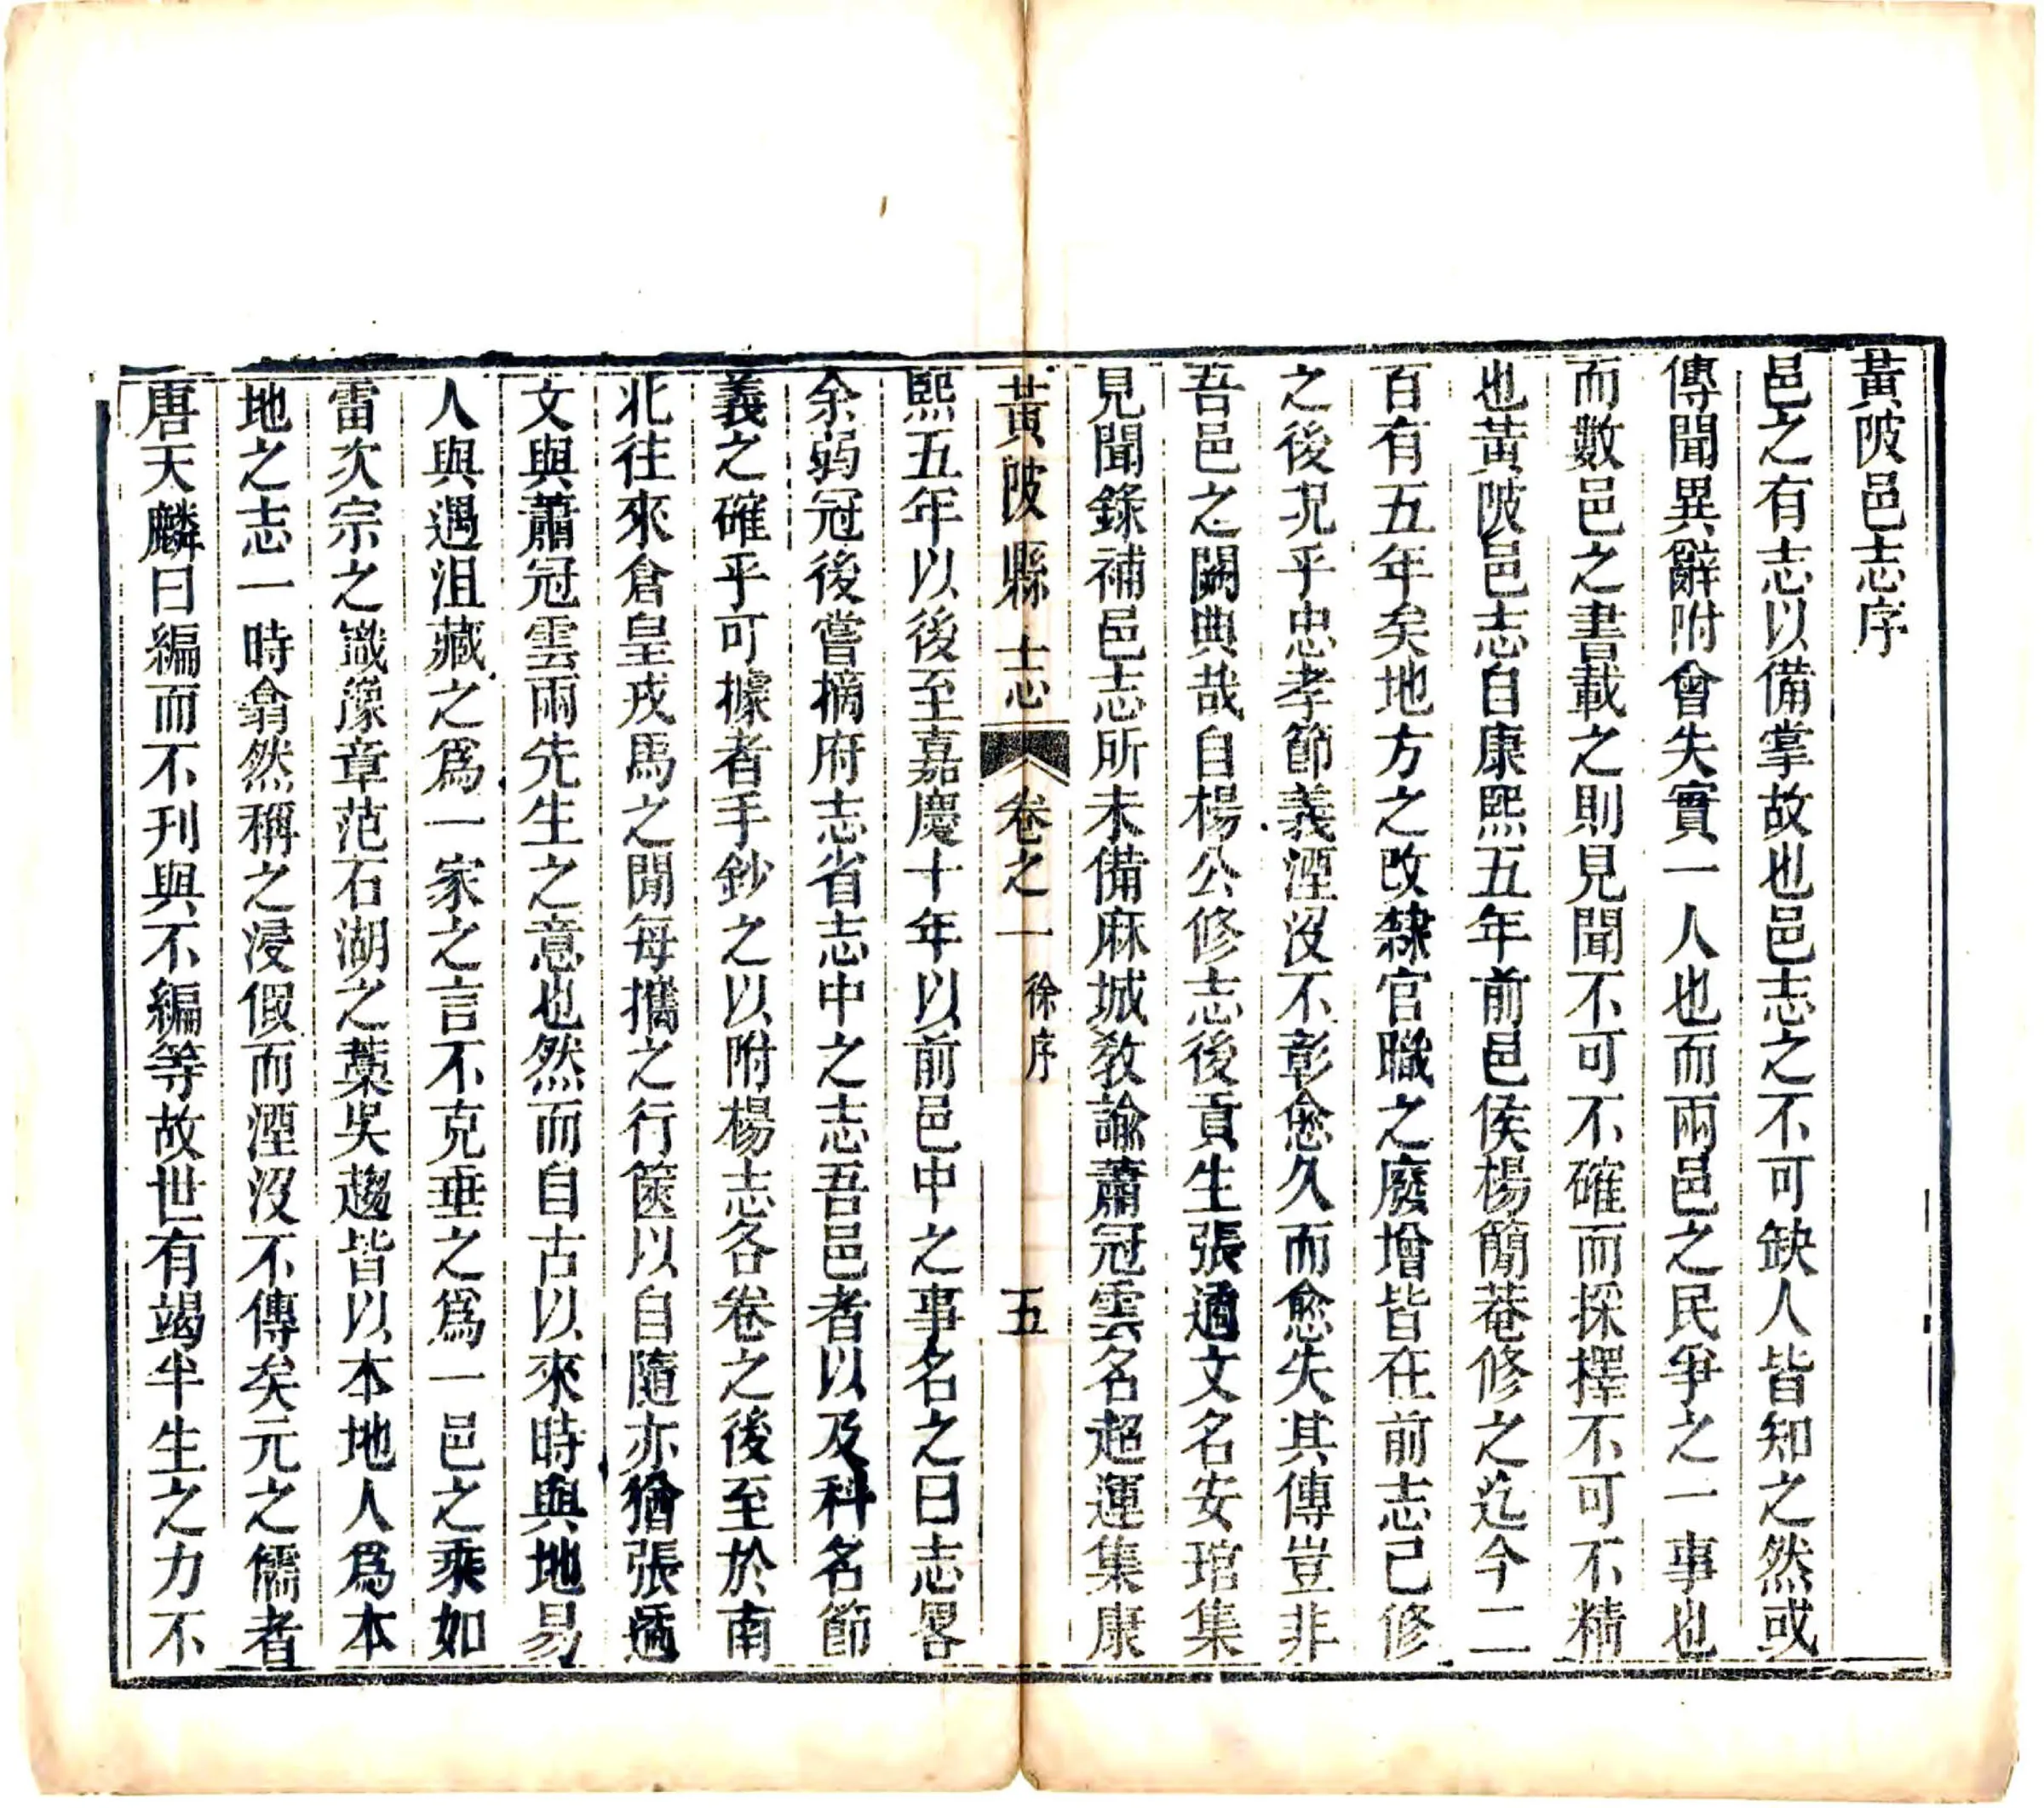 黃陂邑志序
邑之有志以備掌故也邑志之不可缺人皆知之然或
傳聞異辭附會失實一人也而兩邑之民爭之一事也
而數邑之書載之則見聞不可不確而採擇不可不精
也黃陂邑志自康熙五年前邑侯楊簡菴修之迄今二
百有五年矣地方之改隸官職之廢增皆在前志已修
之後況乎忠孝節義湮沒不彰愈久而愈失其傳豈非
吾邑之闕典哉自楊公修志後貢生張遹文名安琯集
見聞錄補邑志所未備麻城敎諭蕭冠雲名超運集康
黃陂縣志 卷之一 徐序 五
熙五年以後至嘉慶十年以前邑中之事名之曰志畧
余弱冠後嘗摘府志省志中之志吾邑者以及科名節
義之確乎可據者手鈔之以附楊志各卷之後至於南
北往來倉皇戎馬之閒每攜之行篋以自隨亦猶張遹
文與蕭冠雲兩先生之意也然而自古以來時與地易
人與遇沮藏之爲一家之言不克垂之爲一邑之乘如
雷次宗之識豫章范石湖之藁吳趨皆以本地人爲本
地之志一時翕然稱之浸假而湮沒不傳矣元之儒者
唐天麟曰編而不刊與不編等故世有竭半生之力不